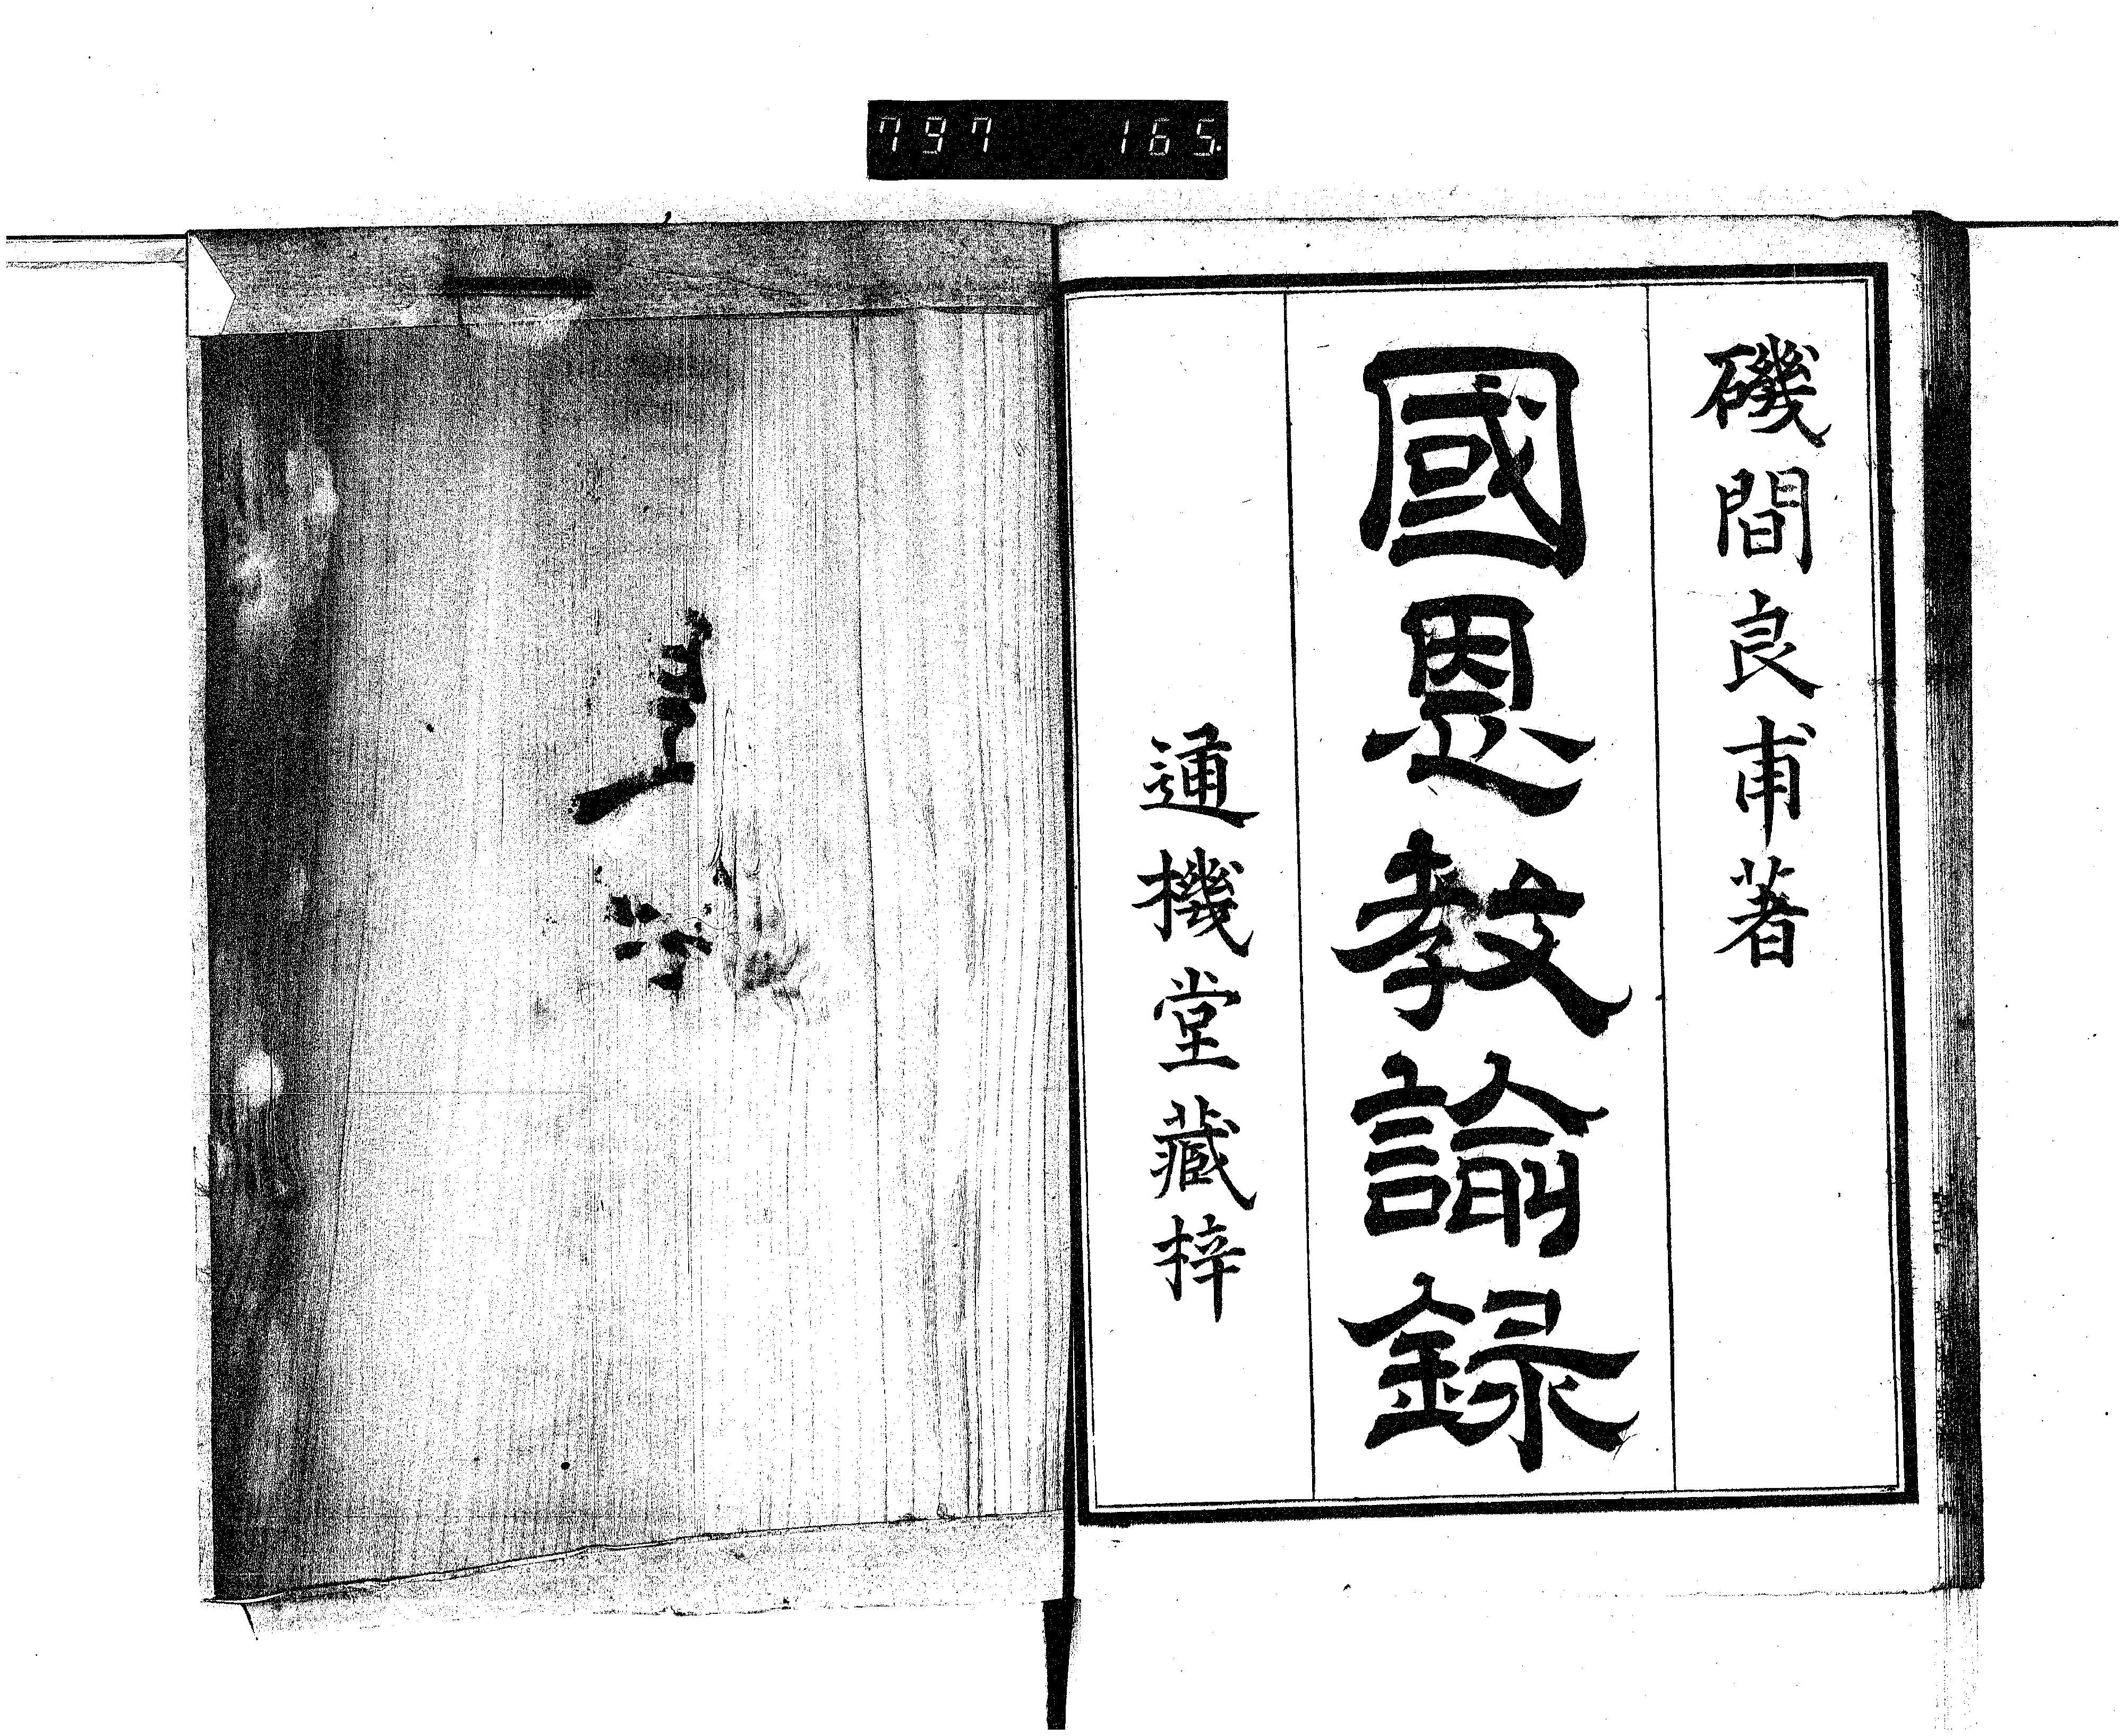 797 165.
磯間良甫著
國恩教諭録
通機堂藏梓